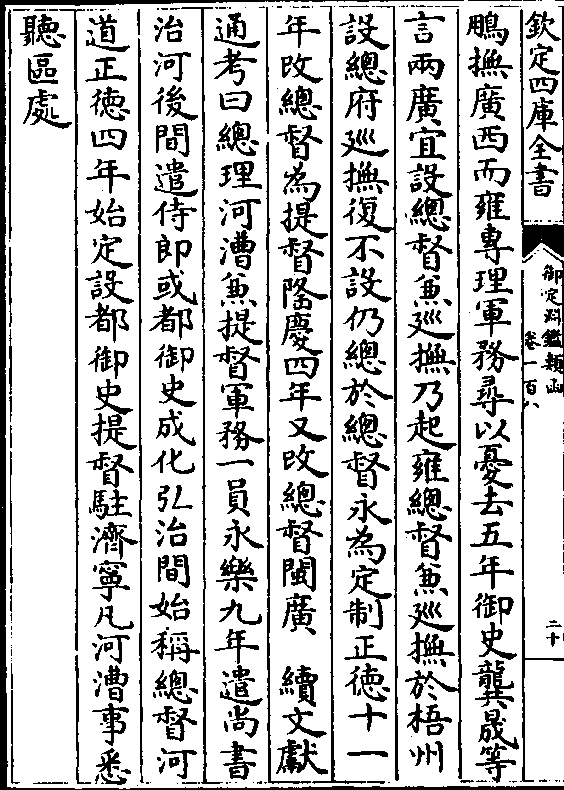 欽定四庫全書
御定淵鑑類函
卷一百八
二十
鵬撫廣西而雍專理軍務尋以憂去五年御史龔晟等
言兩廣宜設總督兼廵撫乃起雍總督兼廵撫於梧州
設總府廵撫復不設仍總於總督永為定制正徳十一
年改總督為提督隆慶四年又改總督閩廣　續文獻
通考曰總理河漕兼提督軍務一員永樂九年遣尚書
治河後間遣侍郎或都御史成化弘治間始稱總督河
道正徳四年始定設都御史提督駐濟寧凡河漕事悉
聽區處